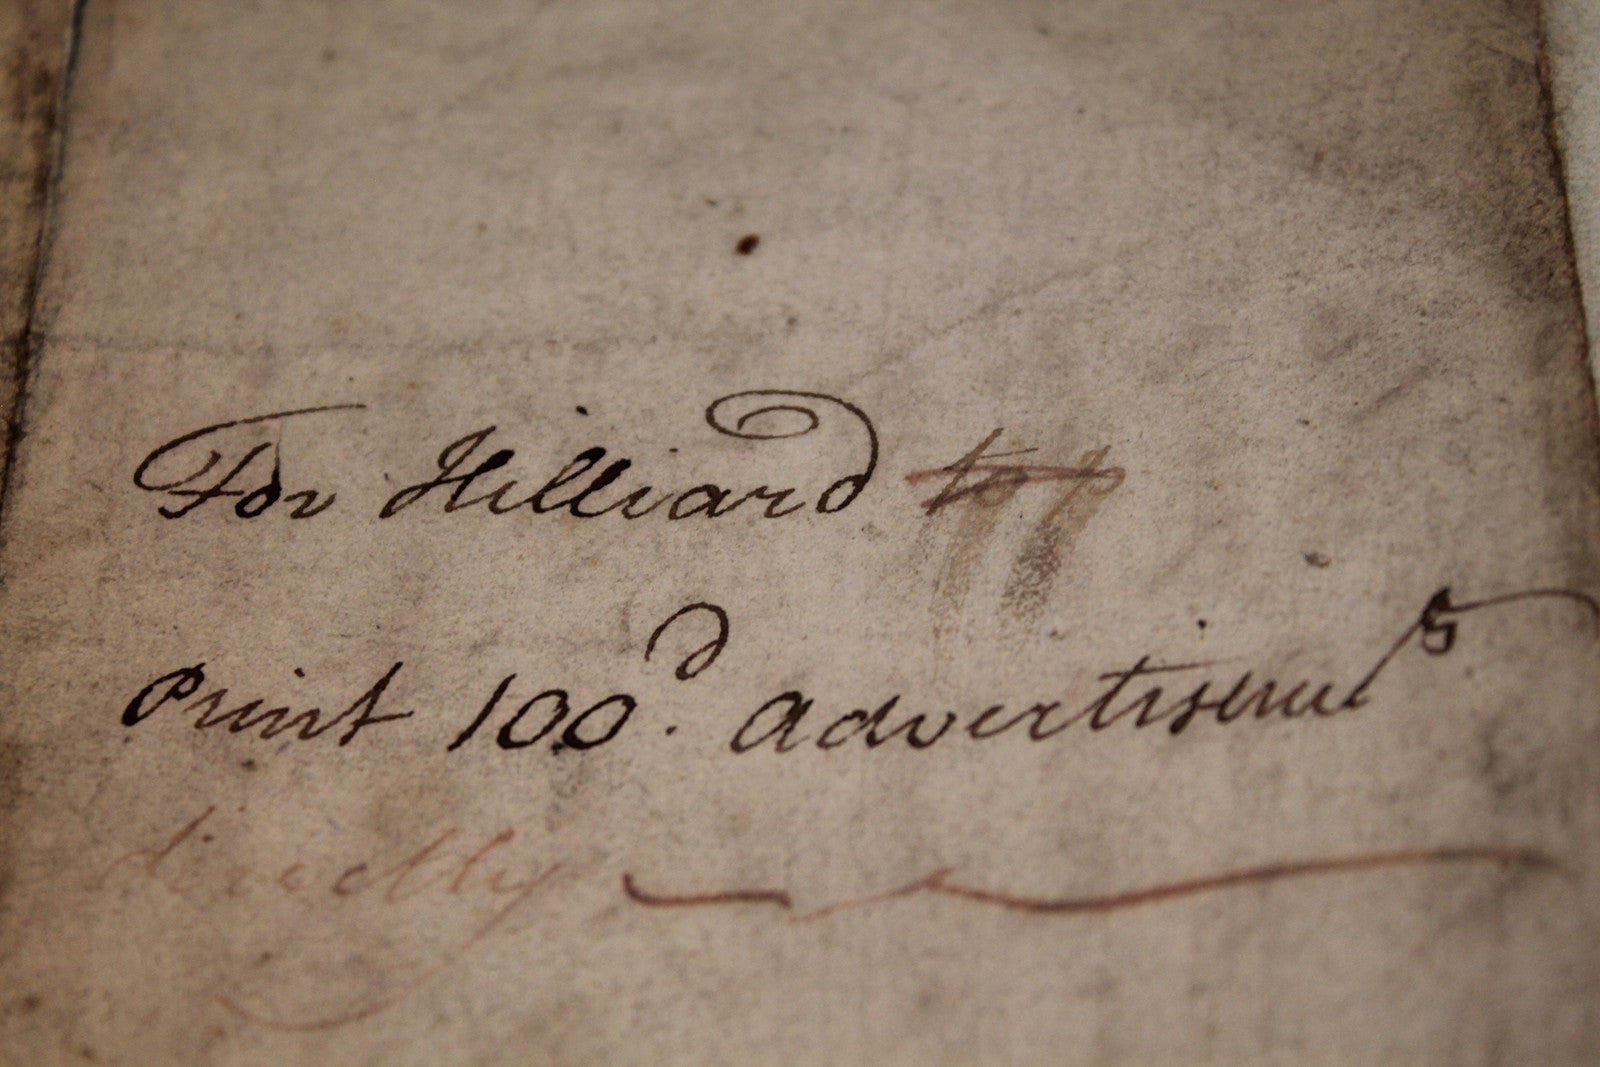 For Hilliard to
Print 100d. advertisems
directly